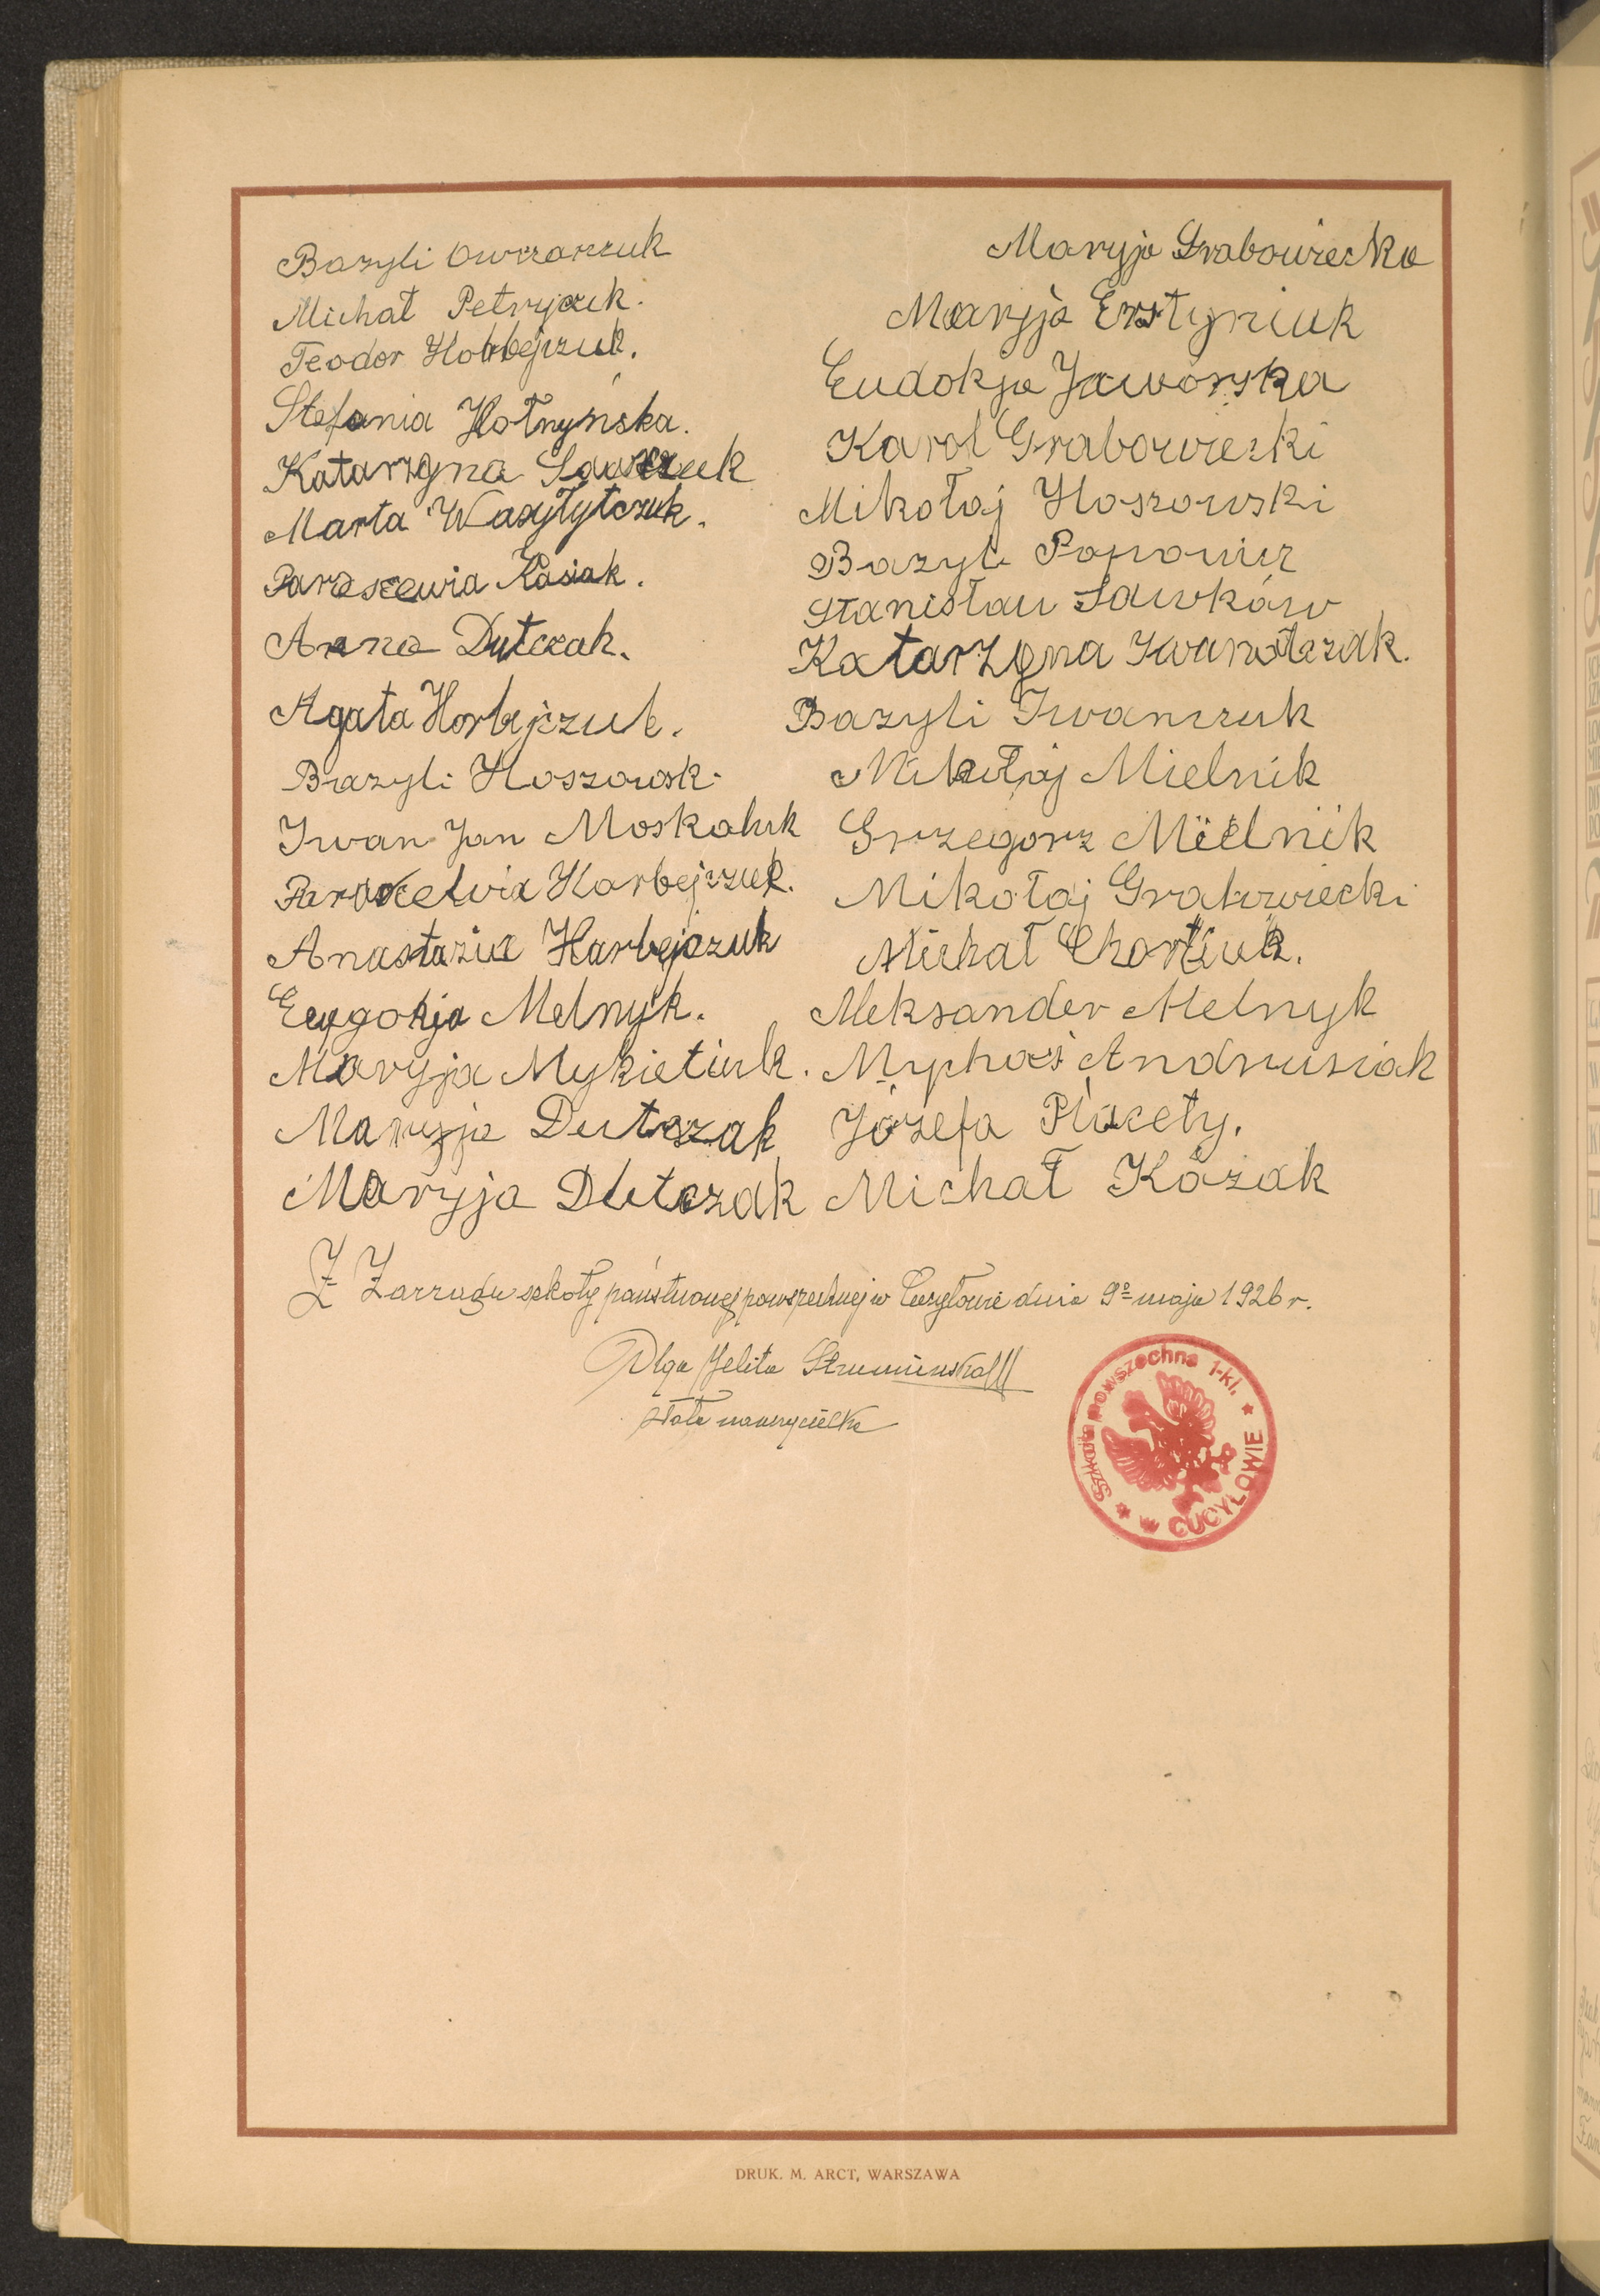 Bazyli Owczarczuk
Michał Petryczuk.
Teodor Horbejczuk.
Stefania Hołnyńska.
Katarzyna
Marta Wasyłytczuk.
Paraskewia Kasiak.
Anna Dutczak.
Agata Horbejczuk.
Bazyli Hoszowski
Iwan Jan Moskaluk
Paraskewia Horbejczuk.
Anastazia Harbejczuk
Melnyk.
Maryja Mykietiuk.
Maryja Dutczak
Maryja Dutczak
Maryja Grabowiecka
Maryja Erstyniuk
Eudokja Jaworska
Karol Grabowiecki
Mikołaj Hoszowski
Bazyli Popowicz
Stanisław Sawków
Katarzyna Iwanotczak.
Bazyli Iwanczuk
Mikołaj Mielnik
Grzegorz Mielnik
Mikołaj Grabowiecki
Michał Chortiuk.
Aleksander Melnyk
Myphaś Andrusiak
Józefa Płacety.
Michał Kozak
Z Zarządu szkoły państwowej powszechnej w Cucyłowie dnia 9º maja 1926 r.
Olga Jelita Strumieńska
stała nauczycielka
Szkoła powszechna 1-kl.
* w CUCYŁOWIE *
DRUK. M. ARCT, WARSZAWA